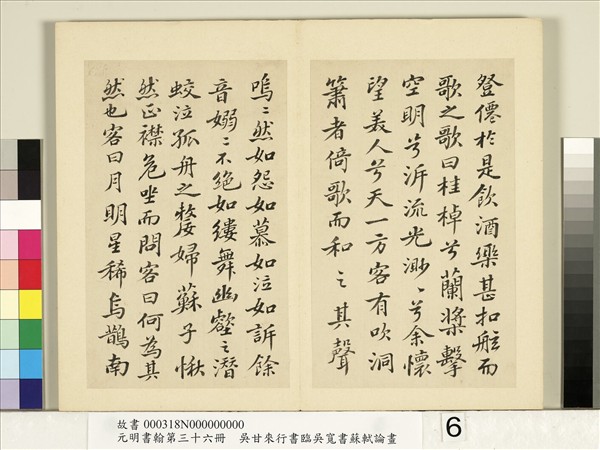 登僊於是飲酒樂甚扣舷而
歌之歌曰桂棹兮蘭槳擊
空明兮泝流光渺〻兮余懷
望美人兮天一方客有吹洞
簫者倚歌而和之其聲
嗚〻然如怨如慕如泣如訴餘
音嫋〻不絕如縷舞幽壑之潛
蛟泣孤舟之嫠婦蘇子愀
然正襟危坐而問客曰何為其
然也客曰月明星稀烏鵲南
故書 000318N000000000
元明書翰第三十六冊　吳甘來行書臨吳寬書蘇軾論畫
6